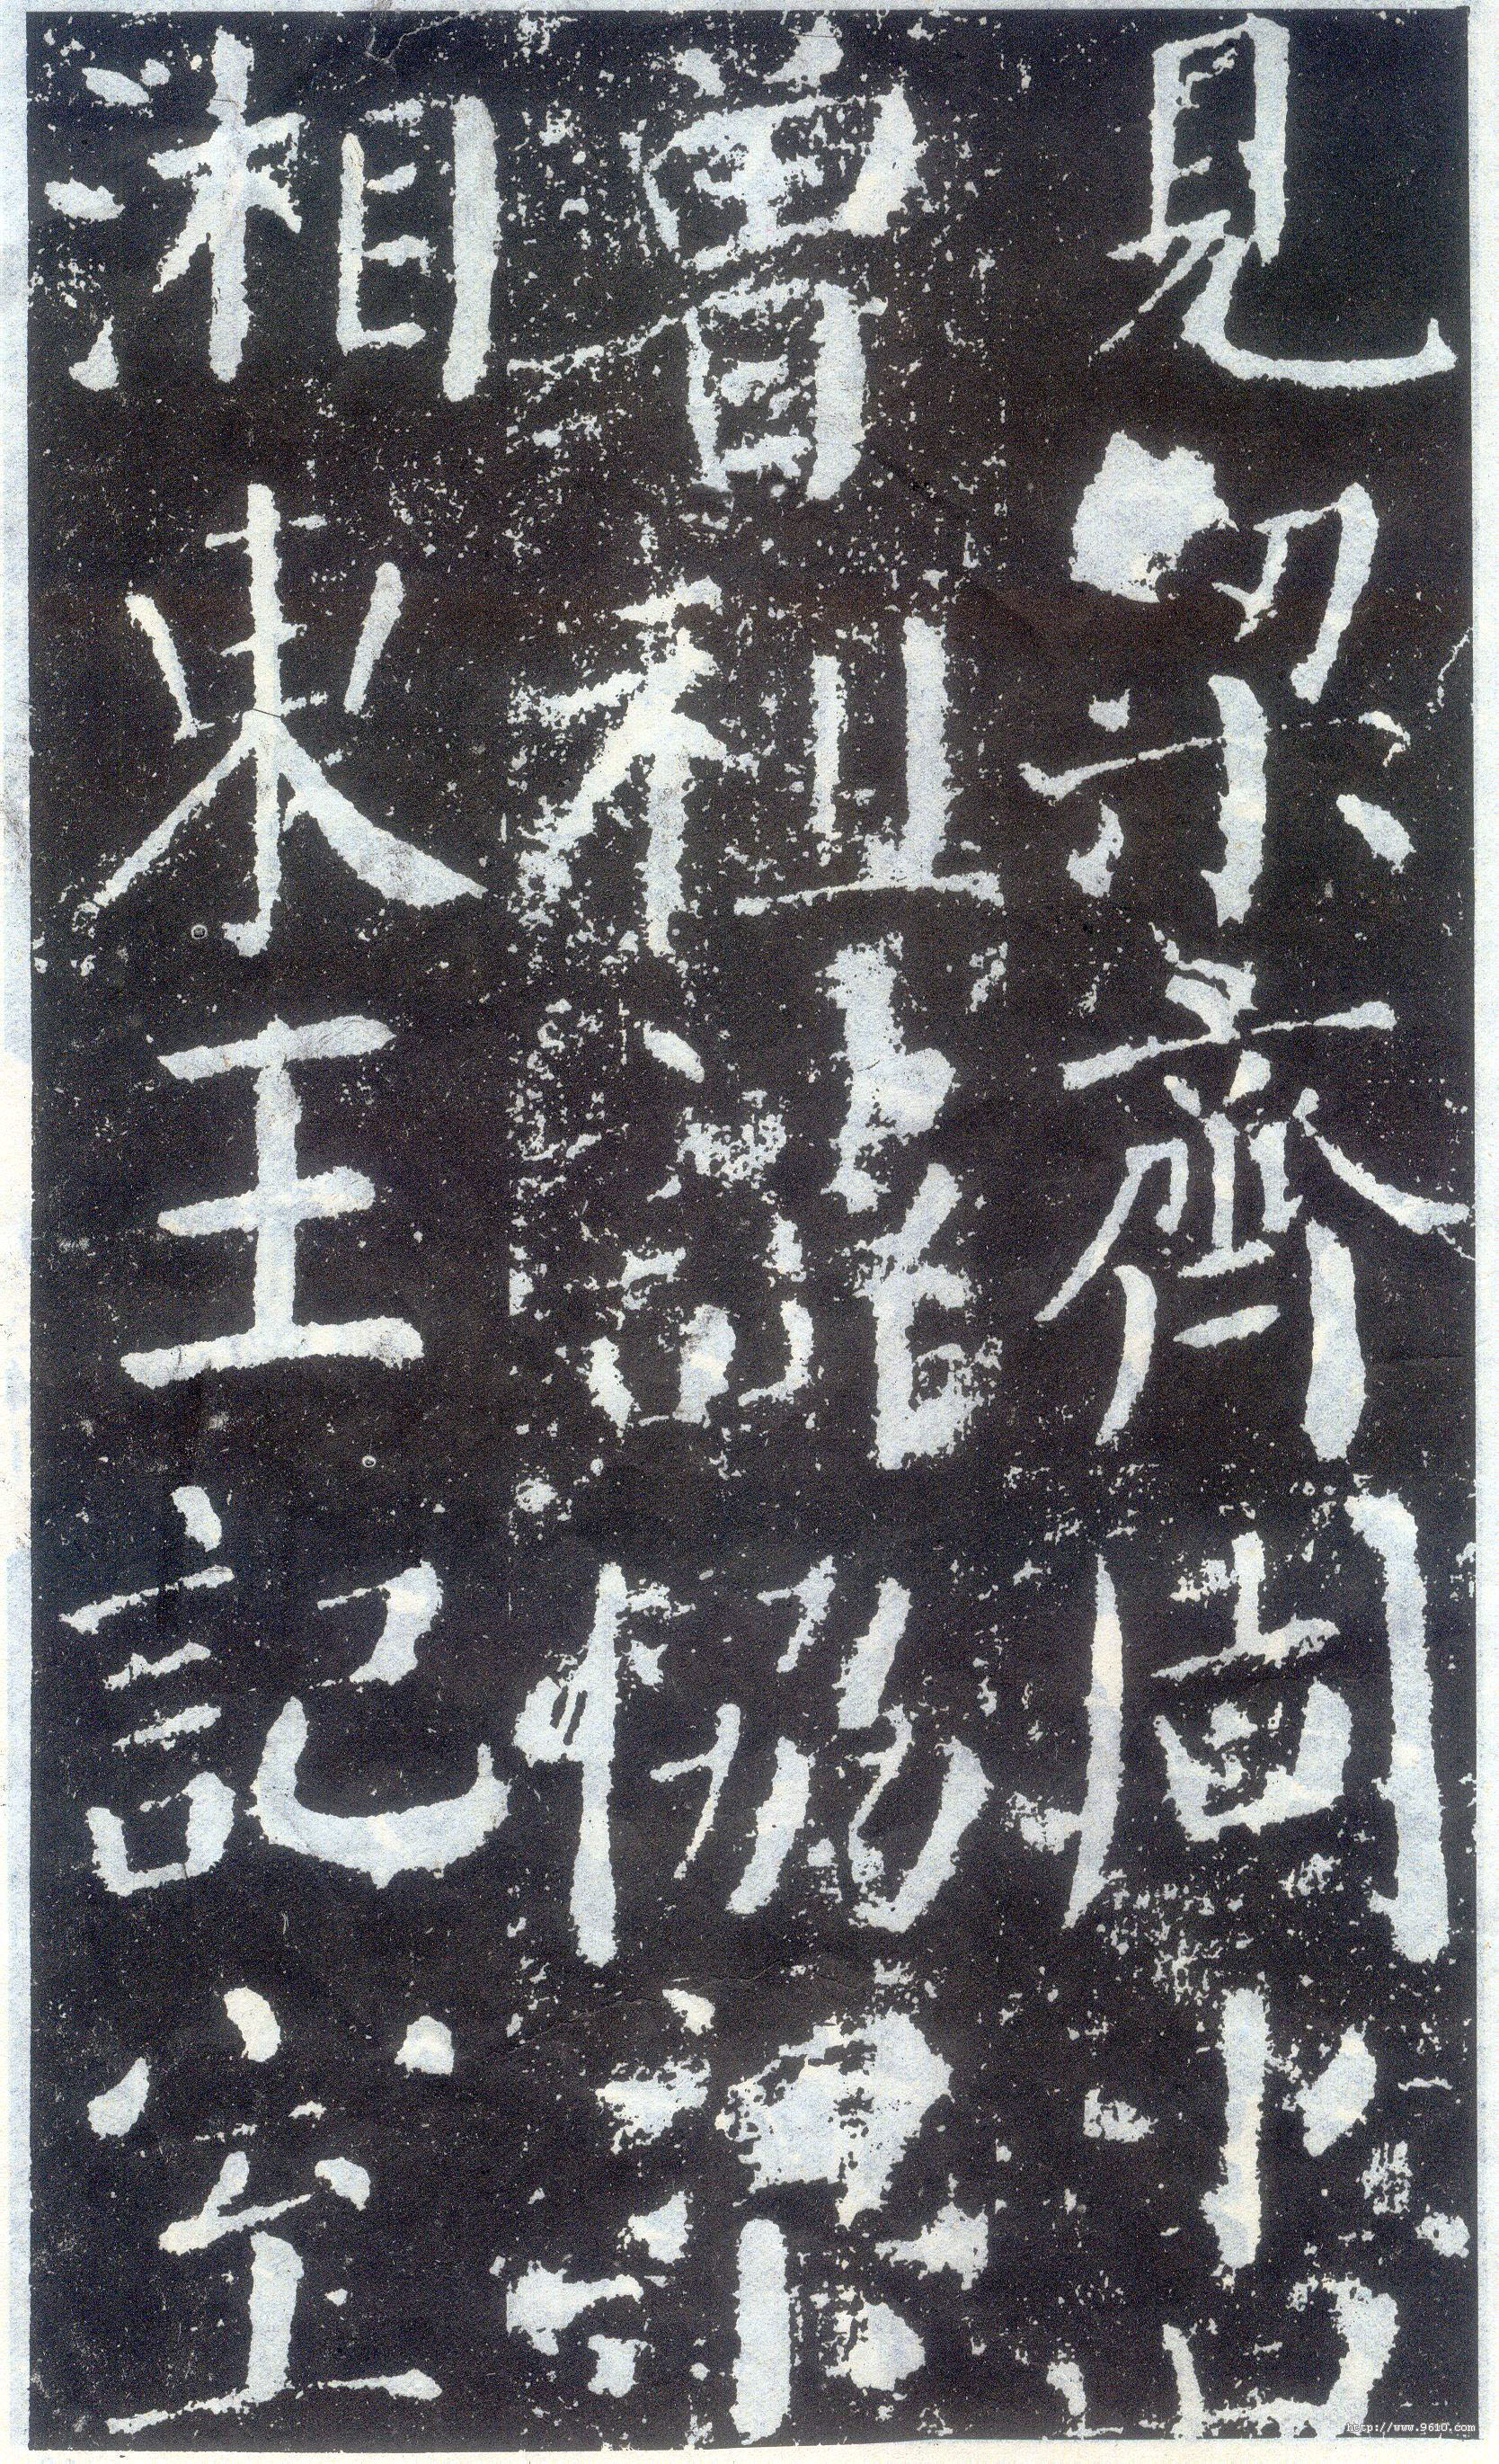 見梁齊周書
曾祖諱協梁
湘東王記室
http://www.9610.com